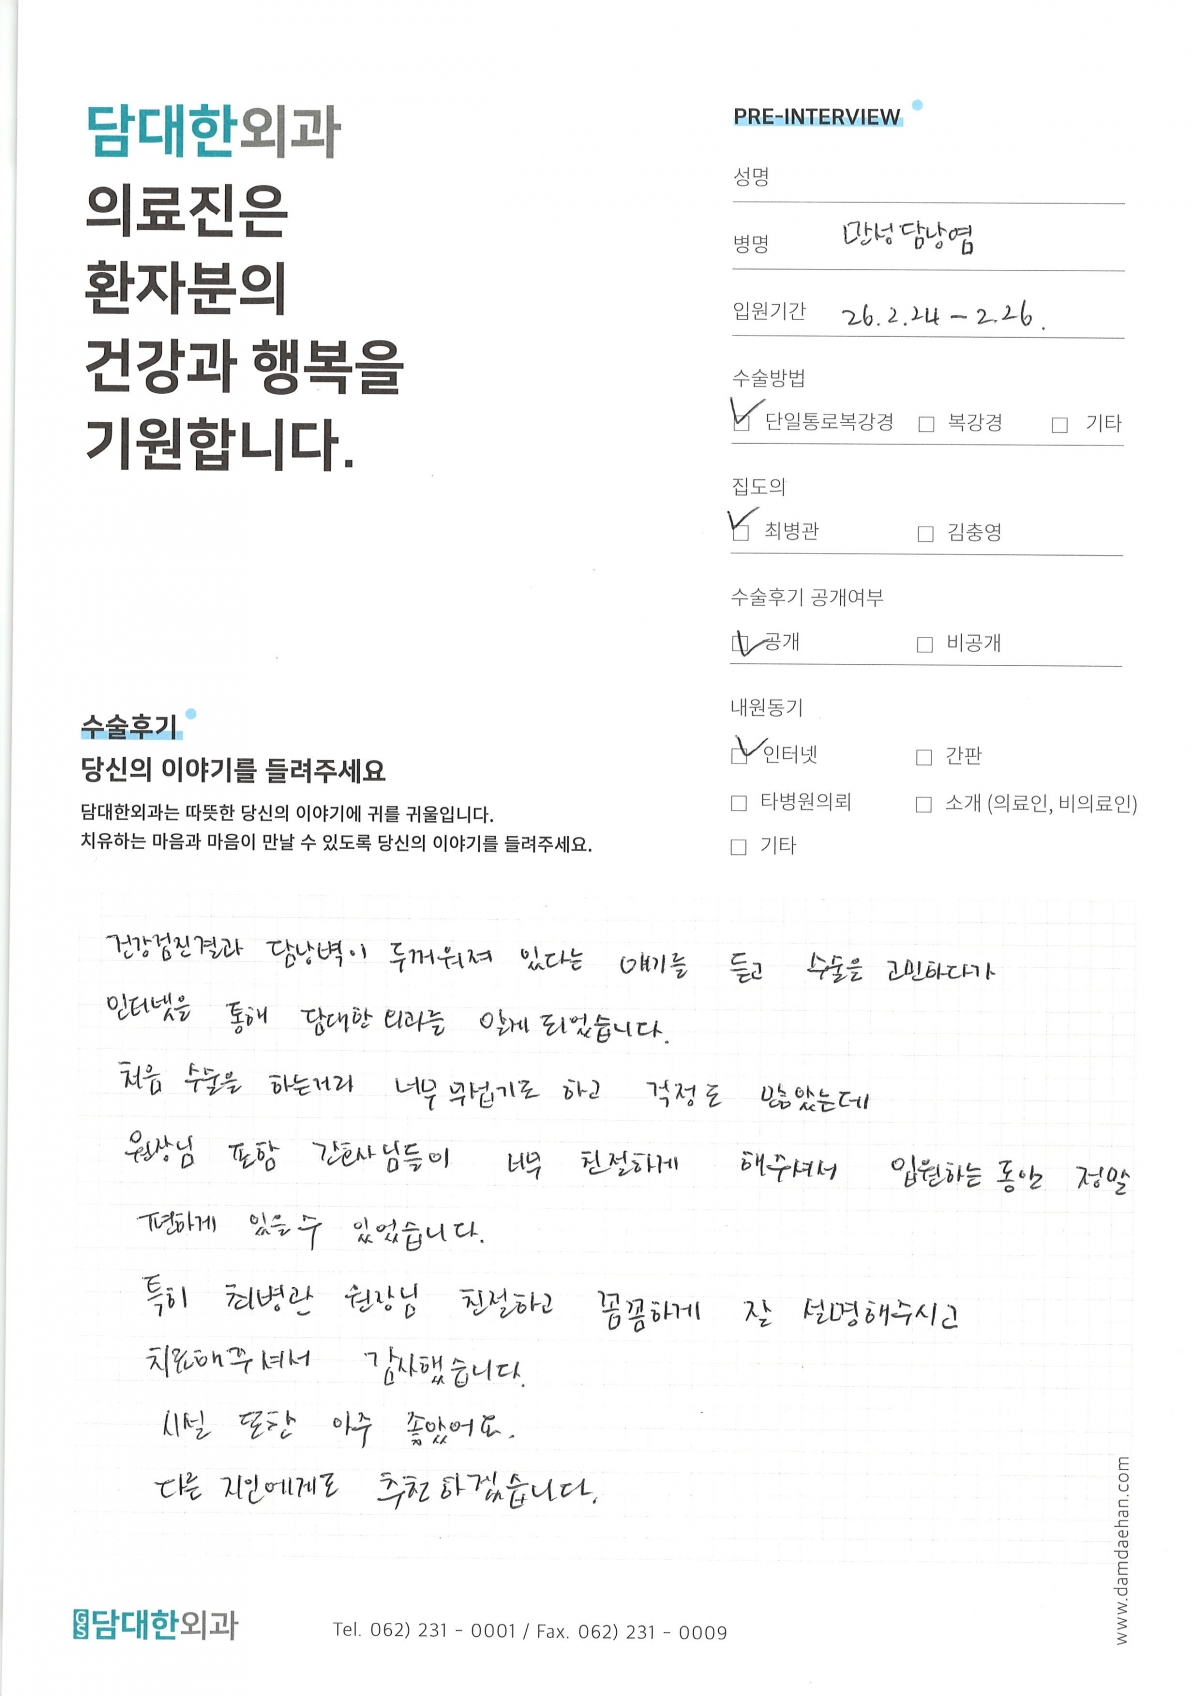 담대한외과
의료진은
환자분의
건강과 행복을
기원합니다.
PRE-INTERVIEW
성명
병명 만성담낭염
입원기간 26.2.24 - 2.26.
수술방법
단일통로복강경 복강경 기타
집도의
최병관 김충영
수술후기 공개여부
공개 비공개
내원동기
인터넷 간판
타병원의뢰 소개 (의료인, 비의료인)
기타
수술후기
당신의 이야기를 들려주세요
담대한외과는 따뜻한 당신의 이야기에 귀를 귀울입니다.
치유하는 마음과 마음이 만날 수 있도록 당신의 이야기를 들려주세요.
건강검진결과 담낭벽이 두꺼워져 있다는 얘기를 듣고 수술을 고민하다가
인터넷을 통해 담대한 외과를 알게 되었습니다.
처음 수술을 하는거라 너무 무섭기도 하고 걱정도 많았는데
원장님 포함 간호사님들이 너무 친절하게 해주셔서 입원하는 동안 정말
편하게 있을수 있었습니다.
특히 최병관 원장님 친절하고 꼼꼼하게 잘 설명해주시고
치료해주셔서 감사했습니다.
시설 또한 아주 좋았어요.
다른 지인에게도 추천하겠습니다.
GS 담대한외과
Tel. 062) 231 - 0001 / Fax. 062) 231 - 0009
www.damdaehan.com